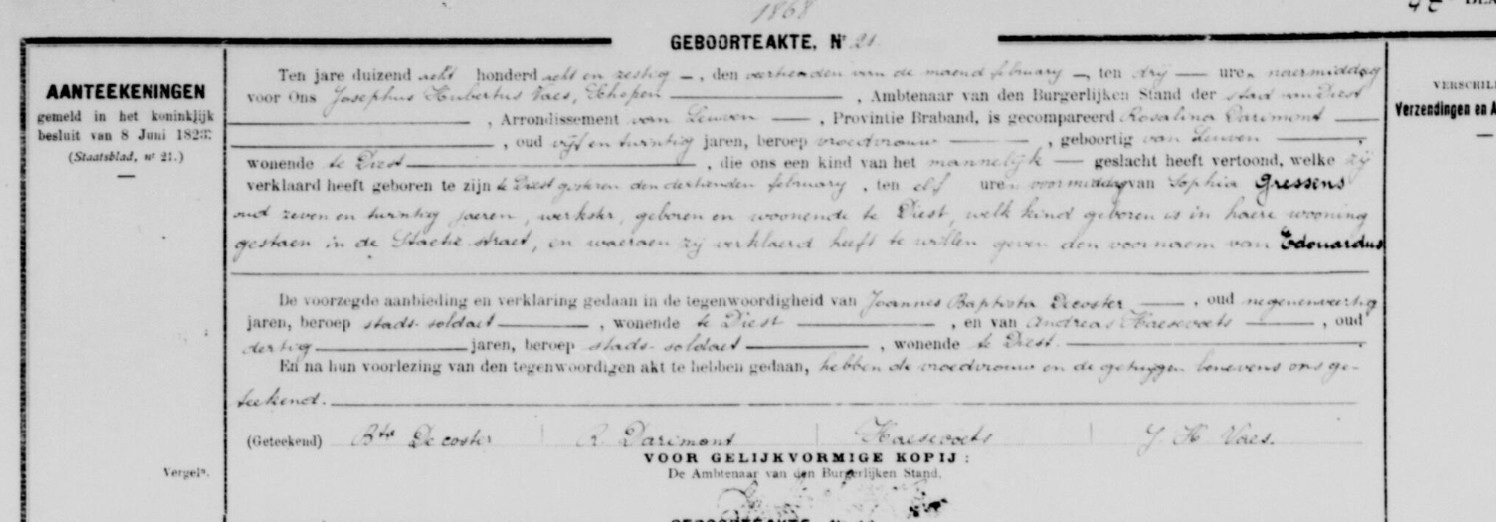 1868
GEBOORTEAKTE. Nr 21
AANTEEKENINGEN
gemeld in het koninklijk
besluit van 8 Juni 1823.
(Staatsblad, nr 21.)
Ten jare duizend acht honderd acht en zestig, den veertienden van de maend february, ten drij uren naermiddag
voor Ons Josephus Hubertus Vaes, Schepen, Ambtenaar van den Burgerlijken Stand der stad van Diest
, Arrondissement van Leuven, Provintie Braband, is gecompareerd Rosalina Darimont
, oud vijf en twintig jaren, beroep vroedvrouw, geboortig van Leuven,
wonende te Diest, die ons een kind van het mannelijk geslacht heeft vertoond, welke zij
verklaard heeft geboren te zijn te Diest gisteren den dertienden february, ten elf uren voormiddag van Sophia Gressens
oud zeven en twintig jaeren, werkster, geboren en woonende te Diest, welk kind geboren is in haere wooning
gestaen in de Statie straet, en waeraen zij verklaerd heeft te willen geven den voornaem van Edouardus
De voorzegde aanbieding en verklaring gedaan in de tegenwoordigheid van Joannes Baptista Decoster, oud negenenveertig
jaren, beroep stads-soldaet, wonende te Diest, en van Andreas Haesevoets, oud
dertig jaren, beroep stads-soldaet, wonende te Diest.
En na hun voorlezing van den tegenwoordigen akt te hebben gedaan, hebben de vroedvrouw en de getuygen benevens ons ge-
teekend.
(Geteekend) Bte Decoster R. Darimont Haesevoets J. H. Vaes.
VOOR GELIJKVORMIGE KOPIJ :
De Ambtenaar van den Burgerlijken Stand.
Vergels.
VERSCHIL
Verzendingen en A